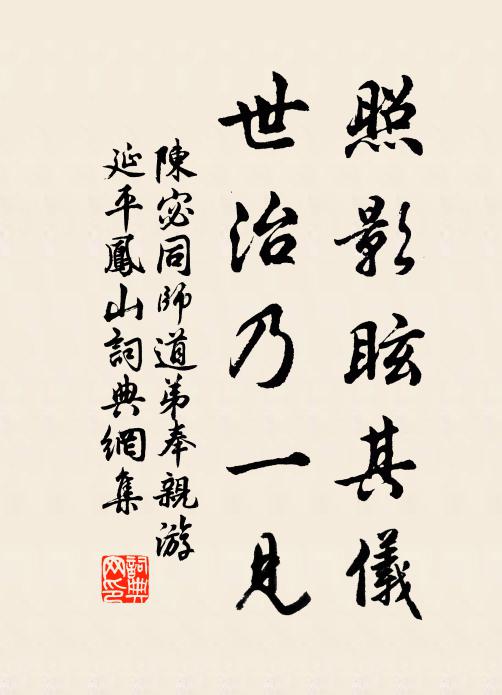 照影眩其儀
世治乃一見
陳宓同師道弟奉親游
延平鳳山詞典網集
詞典网印